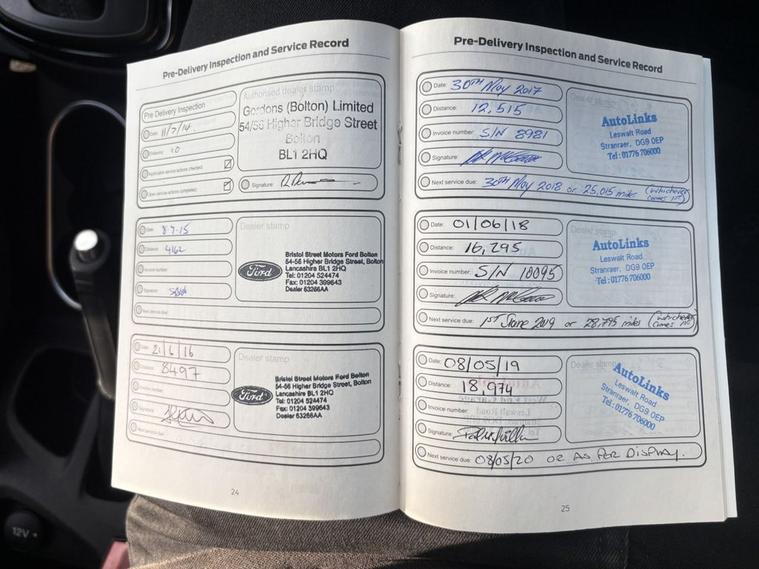 Pre-Delivery Inspection and Service Record
Pre Delivery Inspection
Date: 11/7/14
10
Signature:
Authorised dealer stamp
Gordons (Bolton) Limited
54/56 Higher Bridge Street
Bolton
BL1 2HQ
Date: 8-7-15
Distance: 4162
Invoice number:
Signature:
Next service due:
Dealer stamp
Ford
Bristol Street Motors Ford Bolton
54-56 Higher Bridge Street, Bolton
Lancashire BL1 2HQ
Tel: 01204 524474
Fax: 01204 399643
Dealer 63266AA
Date: 21/6/16
Distance: 8497
Invoice number:
Signature:
Next service due:
Dealer stamp
Ford
Bristol Street Motors Ford Bolton
54-56 Higher Bridge Street, Bolton
Lancashire BL1 2HQ
Tel: 01204 524474
Fax: 01204 399643
Dealer 63266AA
24
Pre-Delivery Inspection and Service Record
Date: 30TH May 2017
Distance: 12,515
Invoice number: S/N 8981
Signature:
Next service due: 30TH May 2018 or 25,015 miles (whichever comes 1st)
Dealer stamp
AutoLinks
Leswalt Road
Stranraer, DG9 0EP
Tel: 01776 706000
Date: 01/06/18
Distance: 16,295
Invoice number: S/N 10095
Signature:
Next service due: 1ST June 2019 or 28,795 miles (whichever comes 1st)
AutoLinks
Leswalt Road
Stranraer, DG9 0EP
Tel: 01776 706000
Date: 08/05/19
Distance: 18,974
Invoice number:
Signature:
Next service due: 08/05/20 OR AS PER DISPLAY.
AutoLinks
Leswalt Road
Stranraer, DG9 0EP
Tel: 01776 706000
25
12V